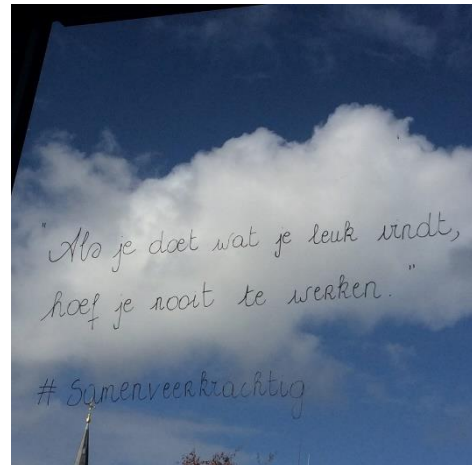 "Als je doet wat je leuk vindt,
hoef je nooit te werken."
# Samenveerkrachtig